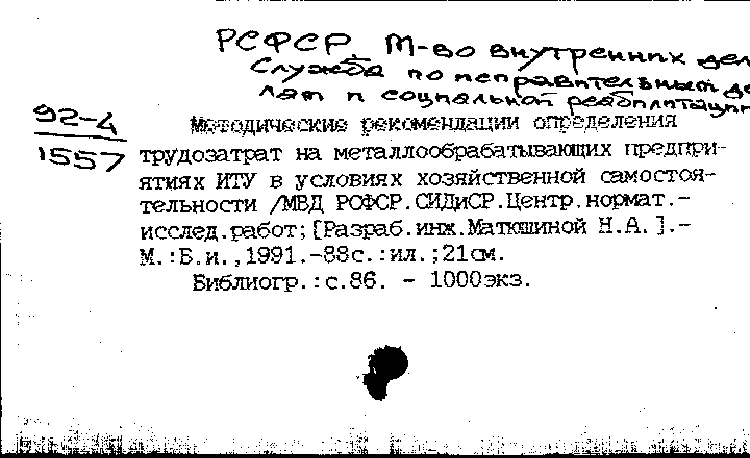 РСФСР. М-во внутренних дел
Служба по исправительным де
лам и социальной реабилитации
92-4
1557
Методические рекомендации определения
трудозатрат на металлообрабатывающих предпри-
ятиях ИТУ в условиях хозяйственной самостоя-
тельности /МВД РСФСР.СИДиСР.Центр.нормат.-
исслед.работ;[Разраб.инж.Матюшиной Н.А.].-
М.:Б.и.,1991.-88с.:ил.;21см.
Библиогр.:с.86. - 1000экз.